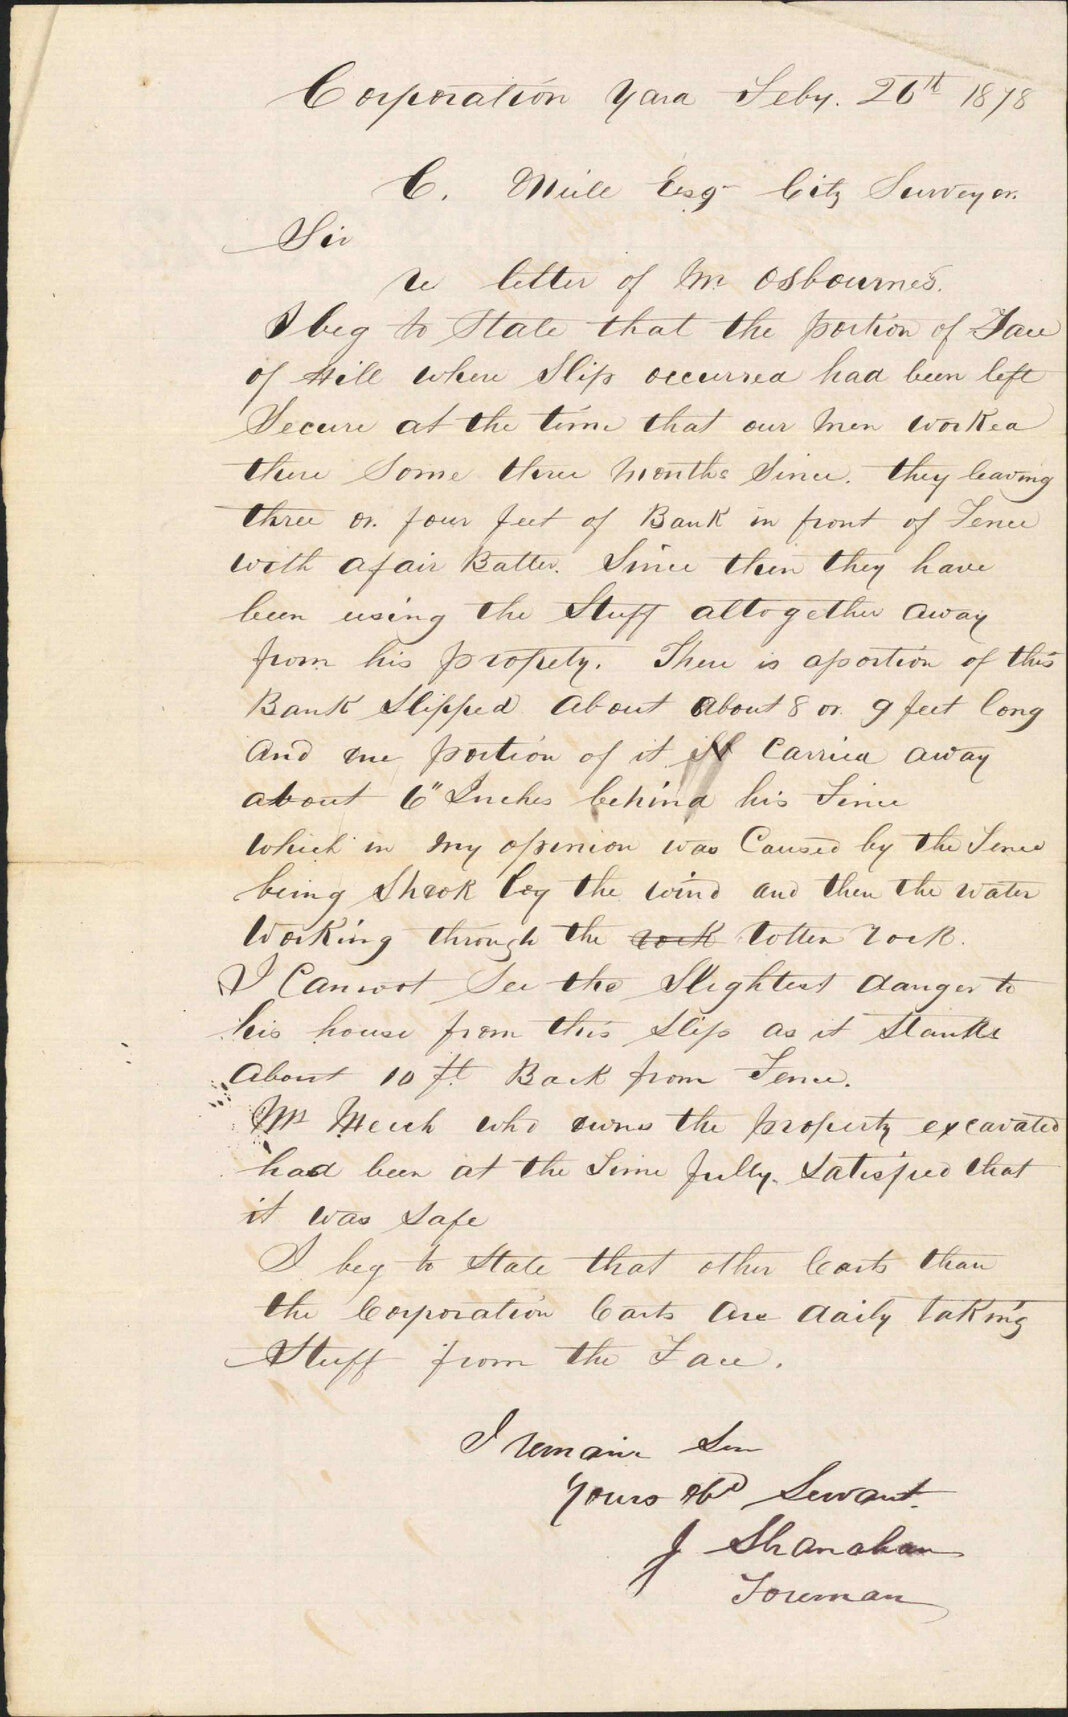 Corporation Yard Feby. 26th 1878
C. Esqr City Surveyor.
Sir
re letter of Mr Osbournes.
I beg to State that the portion of Face
of Hill where Slip occurred had been left
Secure at the time that our Men worked
there Some three Months Since. they leaving
three or four feet of Bank in front of Fence
with a fair Batter. Since then they have
been using the Stuff altogether away
from his propety. There is a portion of this
Bank Slipped About about 8 or 9 feet long
and one portion of it is Carried away
about 6" Inches behind his Fence
which in my opinion was Caused by the Fence
being Shook by the wind and then the water
Working through the rock rotten rock.
I Cannot See the Slightest danger to
his house from this Slip as it Stands
About 10 ft Back from Fence.
who owns the property excavated
had been at the Time fully Satisfied that
it was Safe
I beg to State that other Carts than
the Corporation Carts are daily taking
Stuff from the Face.
I remain Sir
Yours Obd Servant.
J Shanahan
Foreman